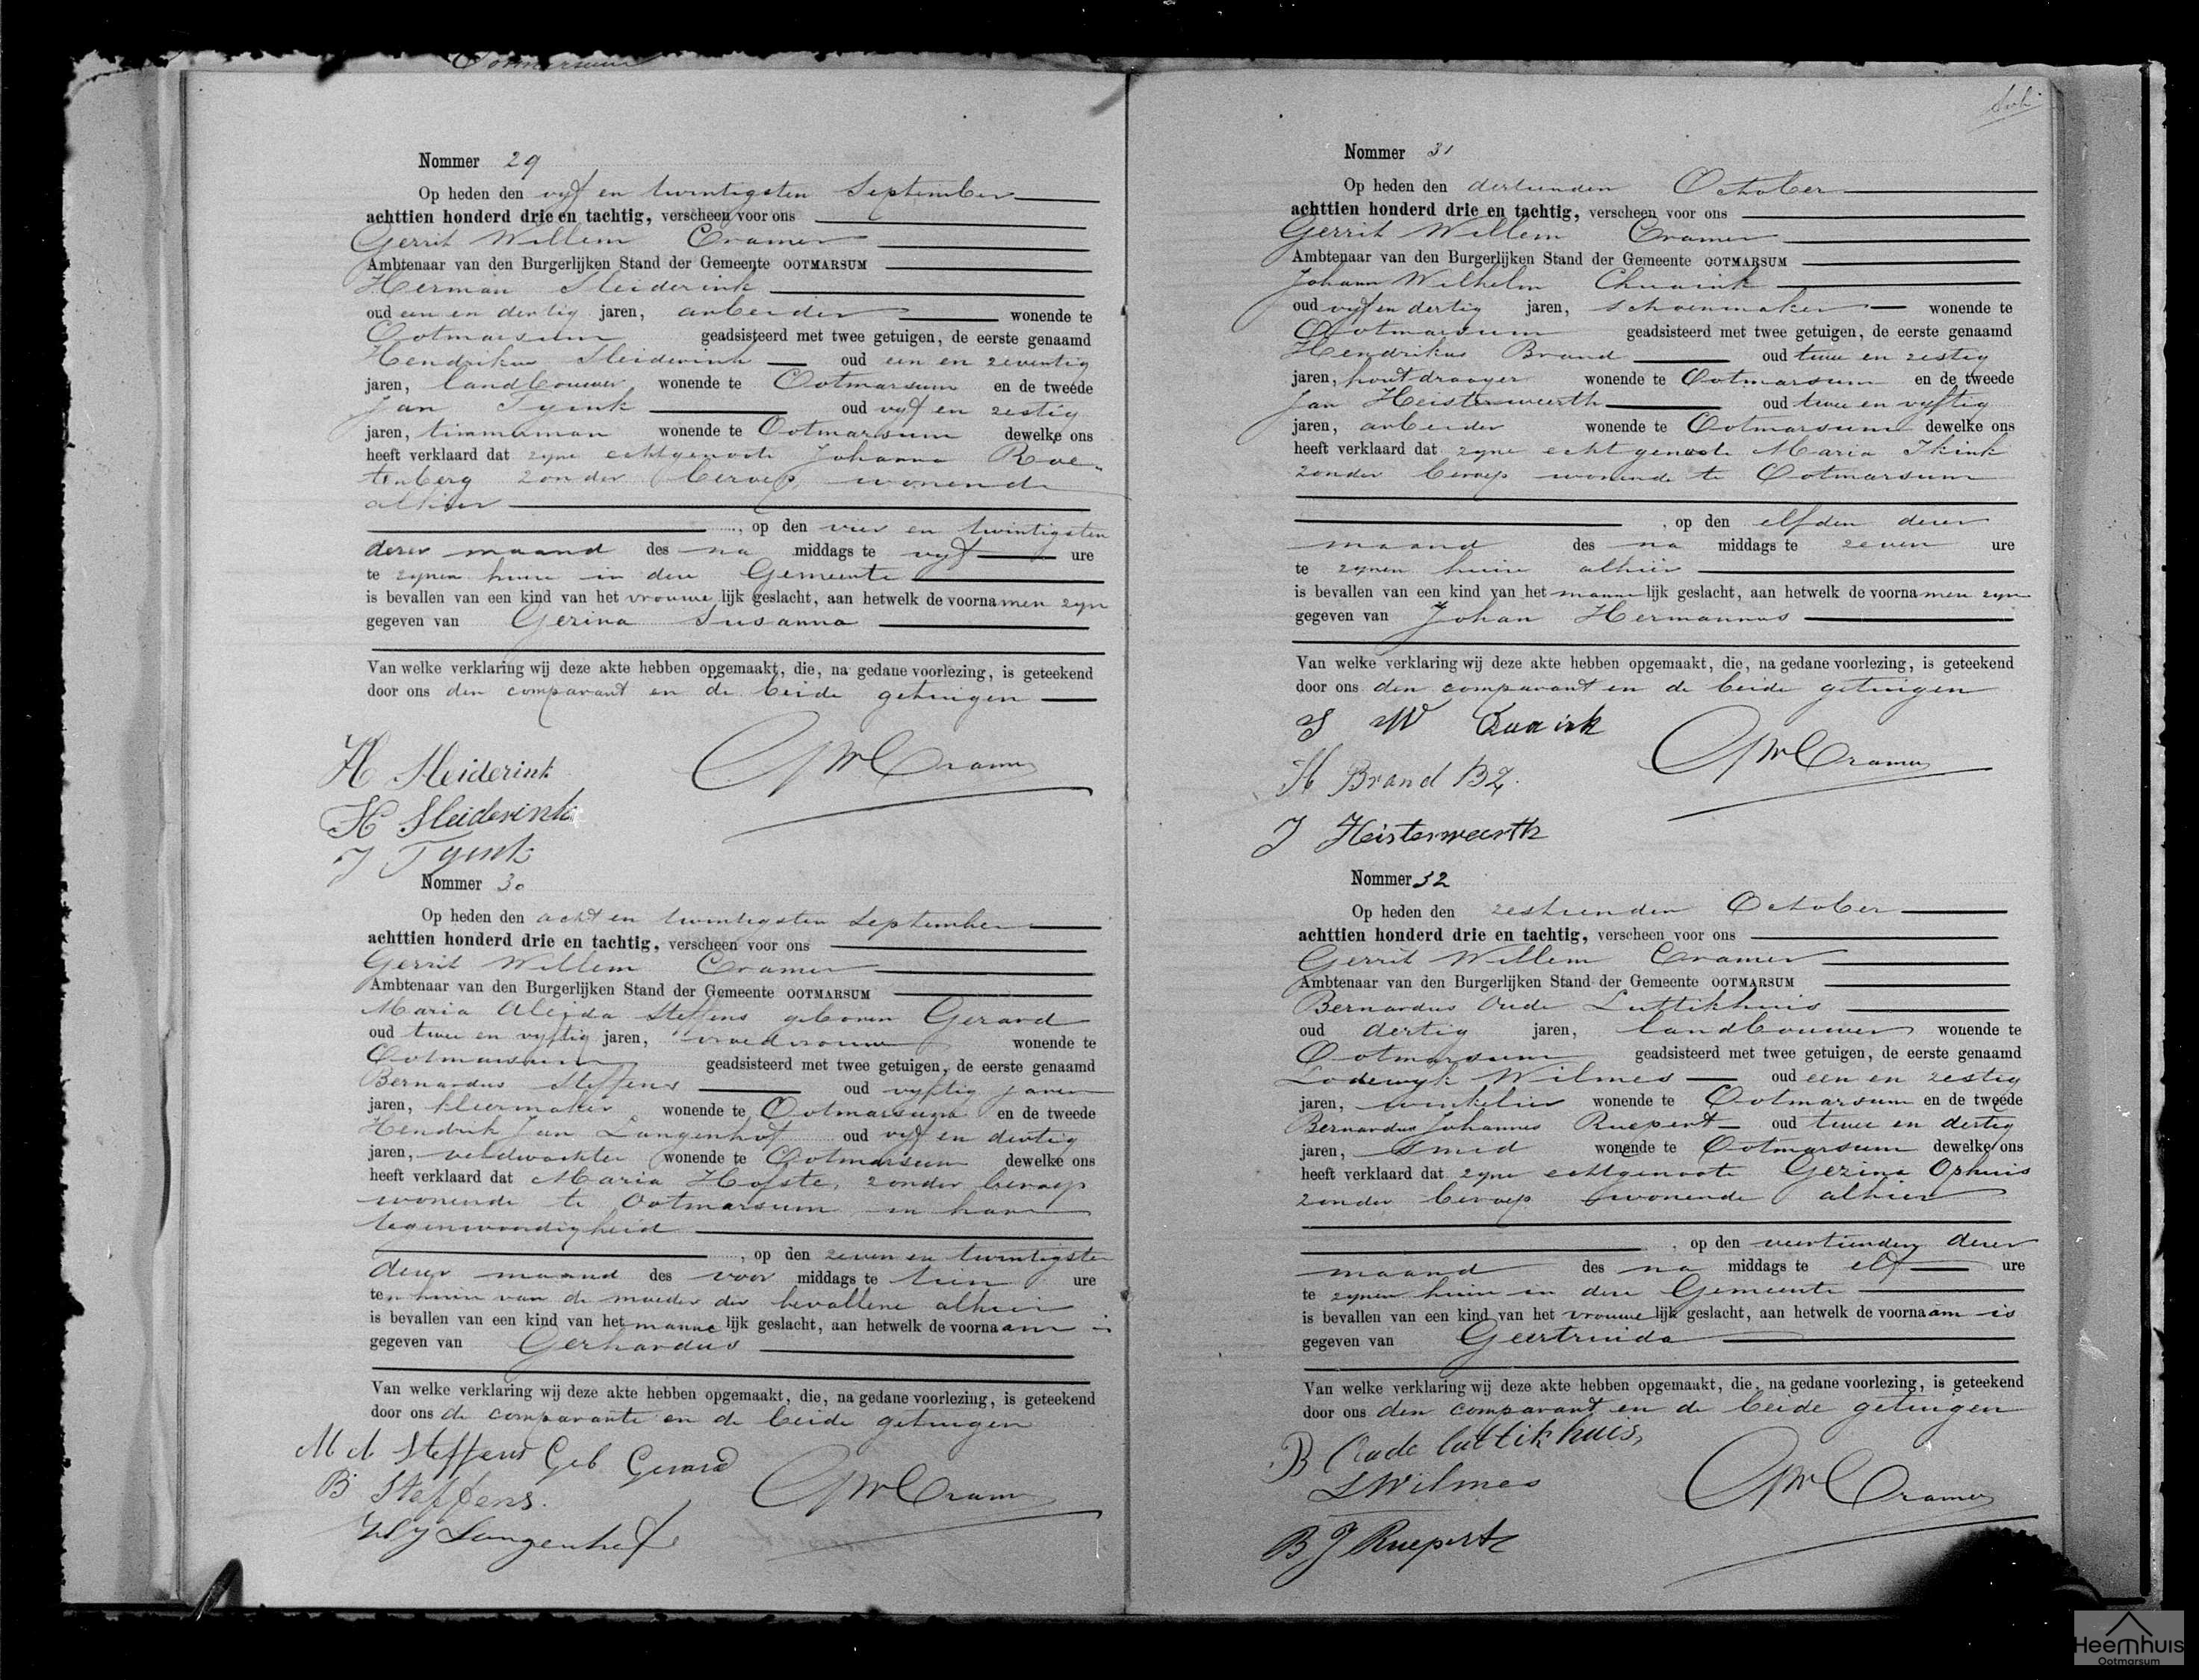 Ootmarsum
Nommer 29
Op heden den vyf en twintigsten September
achttien honderd drie en tachtig, verscheen voor ons
Gerrit Willem Cramer
Ambtenaar van den Burgerlijken Stand der Gemeente OOTMARSUM
Herman Sleiderink
oud een en dertig jaren, arbeider wonende te
Ootmarsum geadsisteerd met twee getuigen, de eerste genaamd
Hendrikus Sleiderink oud een en zeventig
jaren, landbouwer wonende te Ootmarsum en de tweede
Jan Tyink oud vyf en zestig
jaren, timmerman wonende te Ootmarsum dewelke ons
heeft verklaard dat zyne echtgenoote Johanna Roe-
tenberg zonder beroep, wonende
alhier
, op den vier en twintigsten
dezer maand des na middags te vyf ure
te zynen huize in deze Gemeente
is bevallen van een kind van het vrouwelijk geslacht, aan hetwelk de voornamen zyn
gegeven van Gezina Susanna
Van welke verklaring wij deze akte hebben opgemaakt, die, na gedane voorlezing, is geteekend
door ons den comparant en de beide getuigen
H Sleiderink
GWCramer
H Sleiderink
J Tyink
Nommer 30
Op heden den acht en twintigsten September
achttien honderd drie en tachtig, verscheen voor ons
Gerrit Willem Cramer
Ambtenaar van den Burgerlijken Stand der Gemeente OOTMARSUM
Maria Aleida Steffens geboren Gerard
oud twee en vyftig jaren, vroedvrouw wonende te
Ootmarsum geadsisteerd met twee getuigen, de eerste genaamd
Bernardus Steffens oud vyftig jaren
jaren, kleermaker wonende te Ootmarsum en de tweede
Hendrik Jan Langenhof oud vyf en dertig
jaren, veldwachter wonende te Ootmarsum dewelke ons
heeft verklaard dat Maria Hofste, zonder beroep
wonende te Ootmarsum in hare
tegenwoordigheid
, op den zeven en twintigsten
dezer maand des voor middags te tien ure
ten huize van de moeder der bevallene alhier
is bevallen van een kind van het mannelijk geslacht, aan hetwelk de voornaam is
gegeven van Gerhardus
Van welke verklaring wij deze akte hebben opgemaakt, die, na gedane voorlezing, is geteekend
door ons de comparante en de beide getuigen
M A Steffens Geb Gerard
B Steffens.
GWCramer
HJ Langenhof
Nommer 31
Op heden den dertienden October
achttien honderd drie en tachtig, verscheen voor ons
Gerrit Willem Cramer
Ambtenaar van den Burgerlijken Stand der Gemeente OOTMARSUM
Johann Wilhelm
oud vyf en dertig jaren, schoenmaker wonende te
Ootmarsum geadsisteerd met twee getuigen, de eerste genaamd
Hendrikus Brand oud twee en zestig
jaren, houtdraayer wonende te Ootmarsum en de tweede
Jan Heisterweerth oud twee en vyftig
jaren, arbeider wonende te Ootmarsum dewelke ons
heeft verklaard dat zyne echtgenoote Maria Ikink
zonder beroep wonende te Ootmarsum
, op den elfden dezer
maand des na middags te zeven ure
te zynen huize alhier
is bevallen van een kind van het mannelijk geslacht, aan hetwelk de voornamen zyn
gegeven van Johan Hermannus
Van welke verklaring wij deze akte hebben opgemaakt, die, na gedane voorlezing, is geteekend
door ons den comparant en de beide getuigen
J W
GWCramer
H Brand BZ.
J Heisterweerth
Nommer 32
Op heden den zestienden October
achttien honderd drie en tachtig, verscheen voor ons
Gerrit Willem Cramer
Ambtenaar van den Burgerlijken Stand der Gemeente OOTMARSUM
Bernardus Oude Luttikhuis
oud dertig jaren, landbouwer wonende te
Ootmarsum geadsisteerd met twee getuigen, de eerste genaamd
Lodewyk Wilmes oud een en zestig
jaren, winkelier wonende te Ootmarsum en de tweede
Bernardus Johannes Ruepert oud twee en dertig
jaren, smid wonende te Ootmarsum dewelke ons
heeft verklaard dat zyne echtgenoote Gezina Ophuis
zonder beroep wonende alhier
, op den veertienden dezer
maand des na middags te elf ure
te zynen huize in deze Gemeente
is bevallen van een kind van het vrouwelijk geslacht, aan hetwelk de voornaam is
gegeven van Geertruida
Van welke verklaring wij deze akte hebben opgemaakt, die, na gedane voorlezing, is geteekend
door ons den comparant en de beide getuigen
B Oude luttikhuis,
LWilmes
GWCramer
B J Ruepert
Heemhuis
Ootmarsum